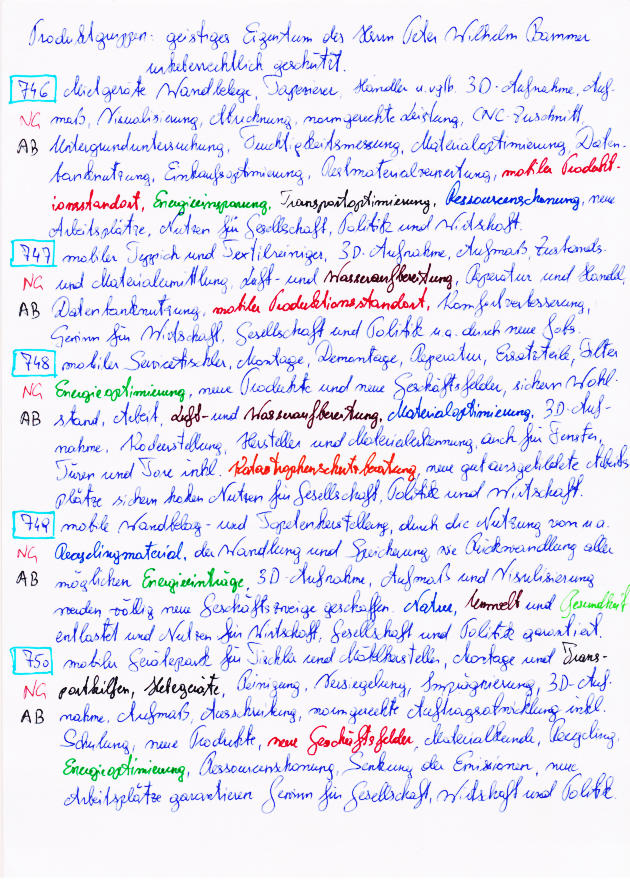 Produktgruppen: geistiges Eigentum des Herrn Peter Wilhelm Bammer
urheberrechtlich geschützt.
746 Mietgeräte Wandbelege, Tapezierer, Händler u. vglb. 3D-Aufnahme, Auf-
NG maß, Visualisierung, Abrechnung, normgerechte Leistung, CNC-Zuschnitt,
AB Untergrunduntersuchung, Feuchtigkeitsmessung, Materialoptimierung, Daten-
banknutzung, Einkaufsoptimierung, Restmaterialverwertung, mobiler Produkt-
ionsstandort, Energieeinsparung, Transportoptimierung, Ressourcenschonung, neue
Arbeitsplätze, Nutzen für Gesellschaft, Politik und Wirtschaft.
747 mobiler Teppich und Textilreiniger, 3D-Aufnahme, Aufmaß, Zustands-
NG und Materialermittlung, Luft- und Wasseraufbereitung, Reperatur und Handel,
AB Datenbanknutzung, mobiler Produktionsstandort, Komfortverbesserung,
Gewinn für Wirtschaft, Gesellschaft und Politik u.a. durch neue Jobs.
748 mobiler Servicetischler, Montage, Demontage, Reperatur, Ersatzteile, Filter
NG Energieoptimierung, neue Produkte und neue Geschäftsfelder, sichern Wohl-
AB stand, Arbeit, Luft- und Wasseraufbereitung, Materialoptimierung, 3D-Auf-
nahme, Kodeerstellung, Hersteller und Materialerkennung, auch für Fenster,
Türen und Tore inkl. Katastrophenschutzberatung, neue gut ausgebildete Arbeits-
plätze sichern hohen Nutzen für Gesellschaft, Politik und Wirtschaft.
749 mobile Wandbelag- und Tapetenherstellung, durch die Nutzung von u.a.
NG Recyclingmaterial, der Wandlung und Speicherung sowie Rückwandlung aller
AB möglichen Energieeinträge, 3D-Aufnahme, Aufmaß und Visulisierung
werden völlig neue Geschäftszweige geschaffen. Natur, Umwelt und Gesundheit
entlastet und Nutzen für Wirtschaft, Gesellschaft und Politik garantiert.
750 mobiler Gerätepark für Tischler und Möbelhersteller, Montage und Trans-
NG porthilfen, Hebegeräte, Reinigung, Versiegelung, Imprägnierung, 3D-Auf-
AB nahme, Aufmaß, Ausschreibung, normgerechte Auftragsabwicklung inkl.
Schulung, neue Produkte, neue Geschäftsfelder, Materialkunde, Recycling,
Energieoptimierung, Ressourcenschonung, Senkung der Emissionen, neue
Arbeitsplätze garantieren Gewinn für Gesellschaft, Wirtschaft und Politik.